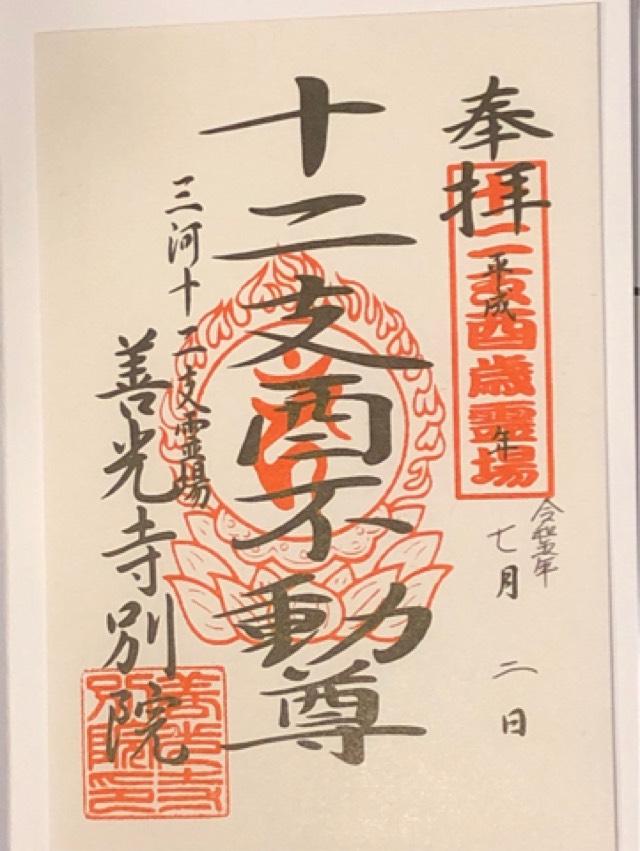 奉拝
十二支酉歳霊場
平成 年
令和五年
七月 二日
十二支酉不動尊
三河十二支霊場
善光寺別院
善光寺別院印